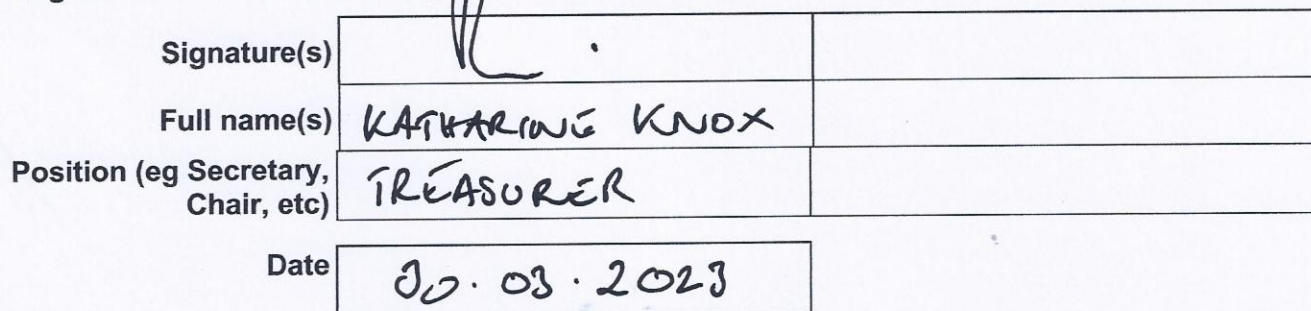 Signature(s)
Full name(s) KATHARINE KNOX
Position (eg Secretary, TREASURER
Chair, etc)
Date 30.03.2023